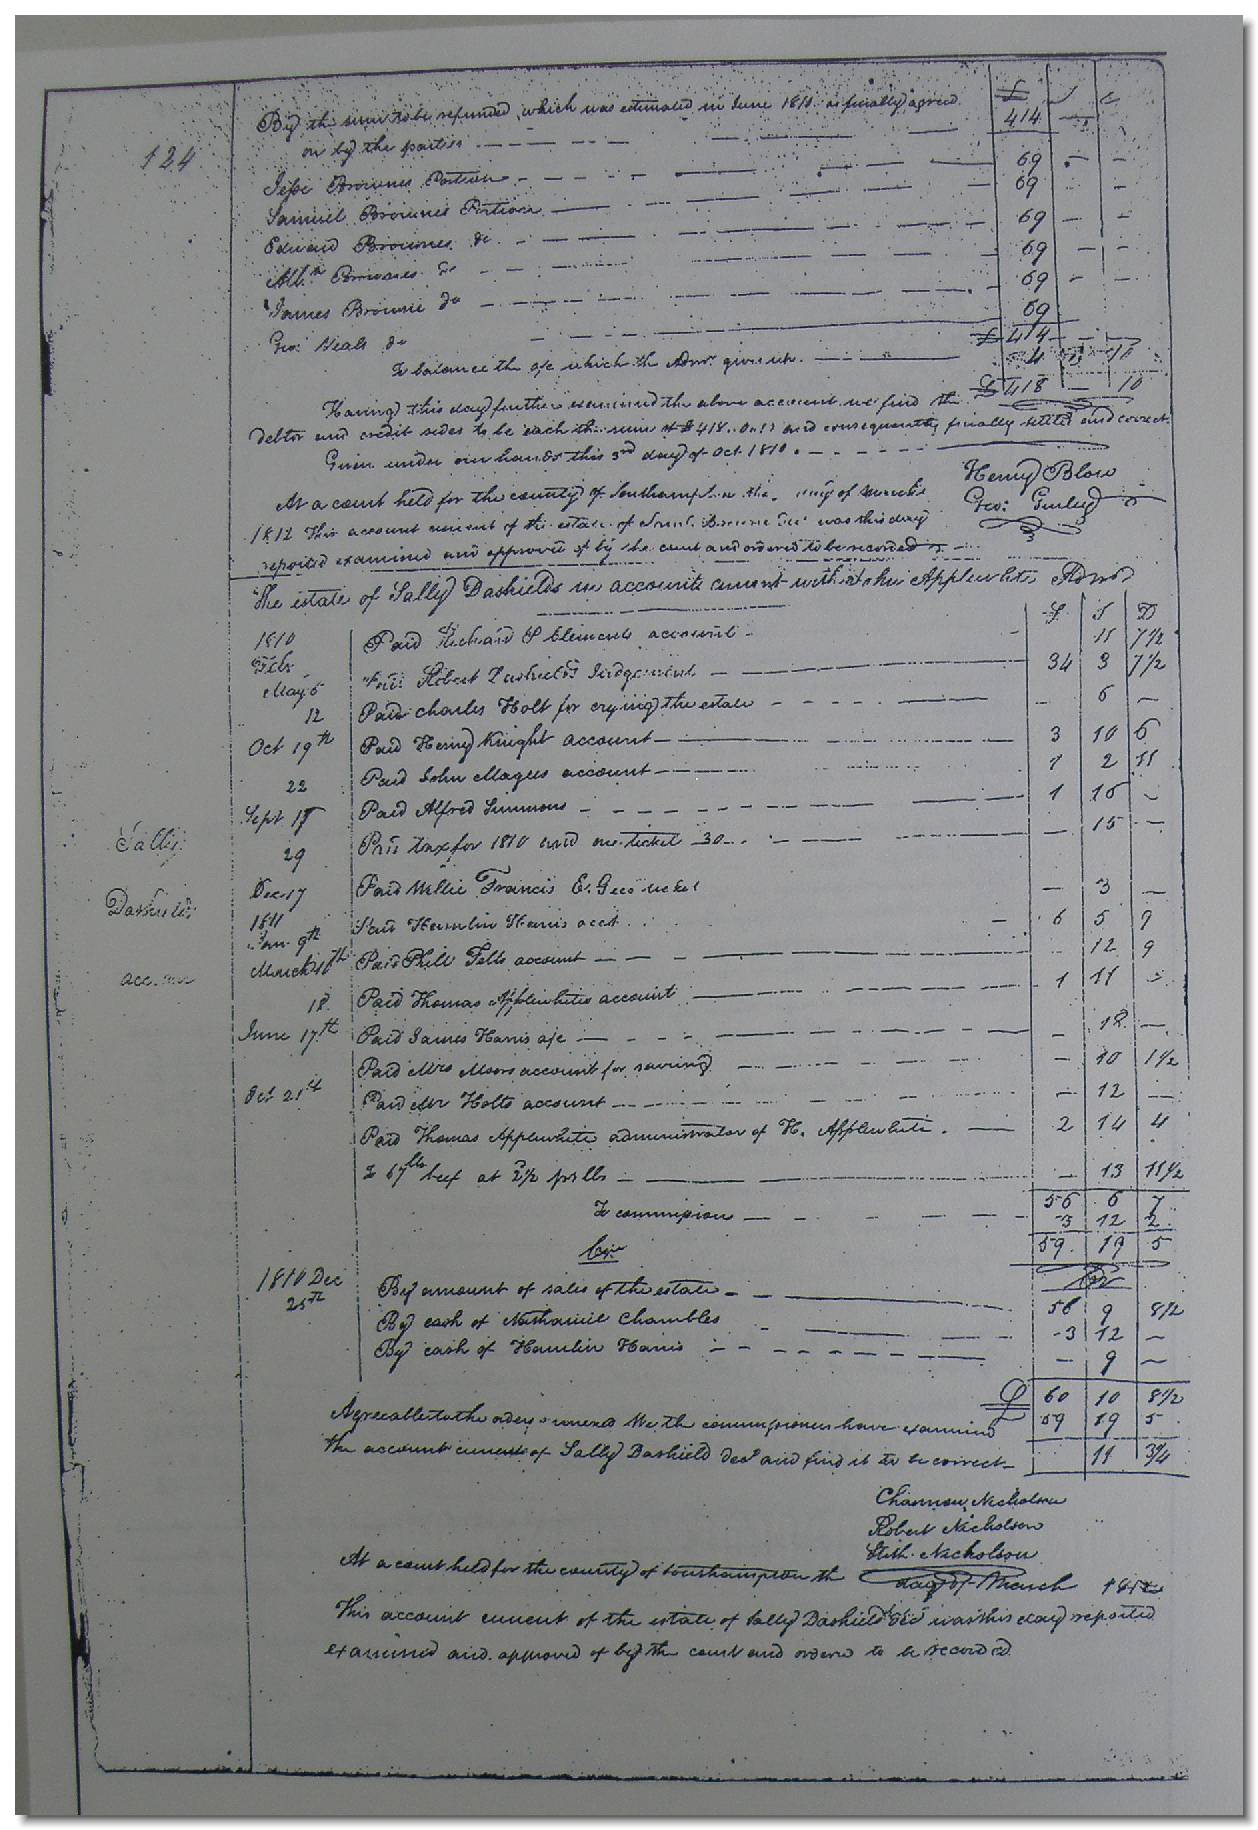 124
By the sum to be refunded, which was estimated in June 1810 as finally agreed
on by the parties
£
414
Jesse Brownes Portion 69
Samuel Brownes Portion 69
Edward Brownes do 69
Brownes do 69
James Browne do 69
Geo: Neals do 69
£ 414
To balance the a/c which the Admr. gives up. 4 10
£ 418 — 10
Having this day further examined the above account we find the
debtor and credit sides to be each the sum of £418. and consequently finally settled and correct.
Given under our hands this 3rd day of Oct 1810.
Henry Blow
Geo: Gurley
At a court held for the county of Southampton the day of March
1812 This account current of the estate of Browne was this day
reported examined and approved of by the court and ordered to be recorded
The estate of Sally Dashields in accounts current with John Applewhite Admr
£ S D
1810
Feby Paid Richard P Clements account 11 7½
May 5 Robert Dashields Judgement 34 3 7½
12 Paid Charles Holt for crying the estate 6 —
Oct 19th Paid Henry Knight account 3 10 6
22 Paid John Magees account 1 2 11
Sept 18 Paid Alfred Simmons 1 16 —
29 Paid tax for 1810 and one ticket 30 — 15 —
Dec 17 Paid Willie Francis E. Gees ticket — 3 —
1811
Jan 9th Paid Hamlin Harris acct 6 5 9
March 10th Paid Phill Felts account 12 9
18 Paid Thomas Applewhites account 1 11
June 17th Paid James Harris a/c — 12 —
Paid Mrs Moors account for sewing — 10 1½
Oct 21st Paid Mr Holts account — 12 —
Paid Thomas Applewhite administrator of H. Applewhite. 2 14 4
To 67 lbs beef at 2½ pr lb — 13 11½
56 6 7
To commission 3 12 2
59 19 5
Cr
Sally
Dashields
account
1810 Dec
25th By amount of sales of the estate 56 9 8½
By cash of Nathaniel Chambles 3 12 —
By cash of Hamlin Harris — 9 —
£ 60 10 8½
59 19 5
11 3¼
Agreeable to the orders annexed We the commissioners have examined
the account current of Sally Dashield decd and find it to be correct
Nicholson
Robert Nicholson
Nicholson
At a court held for the county of Southampton the day of March 1812
This account current of the estate of Sally Dashield decd was this day reported
examined and approved of by the court and ordered to be recorded.